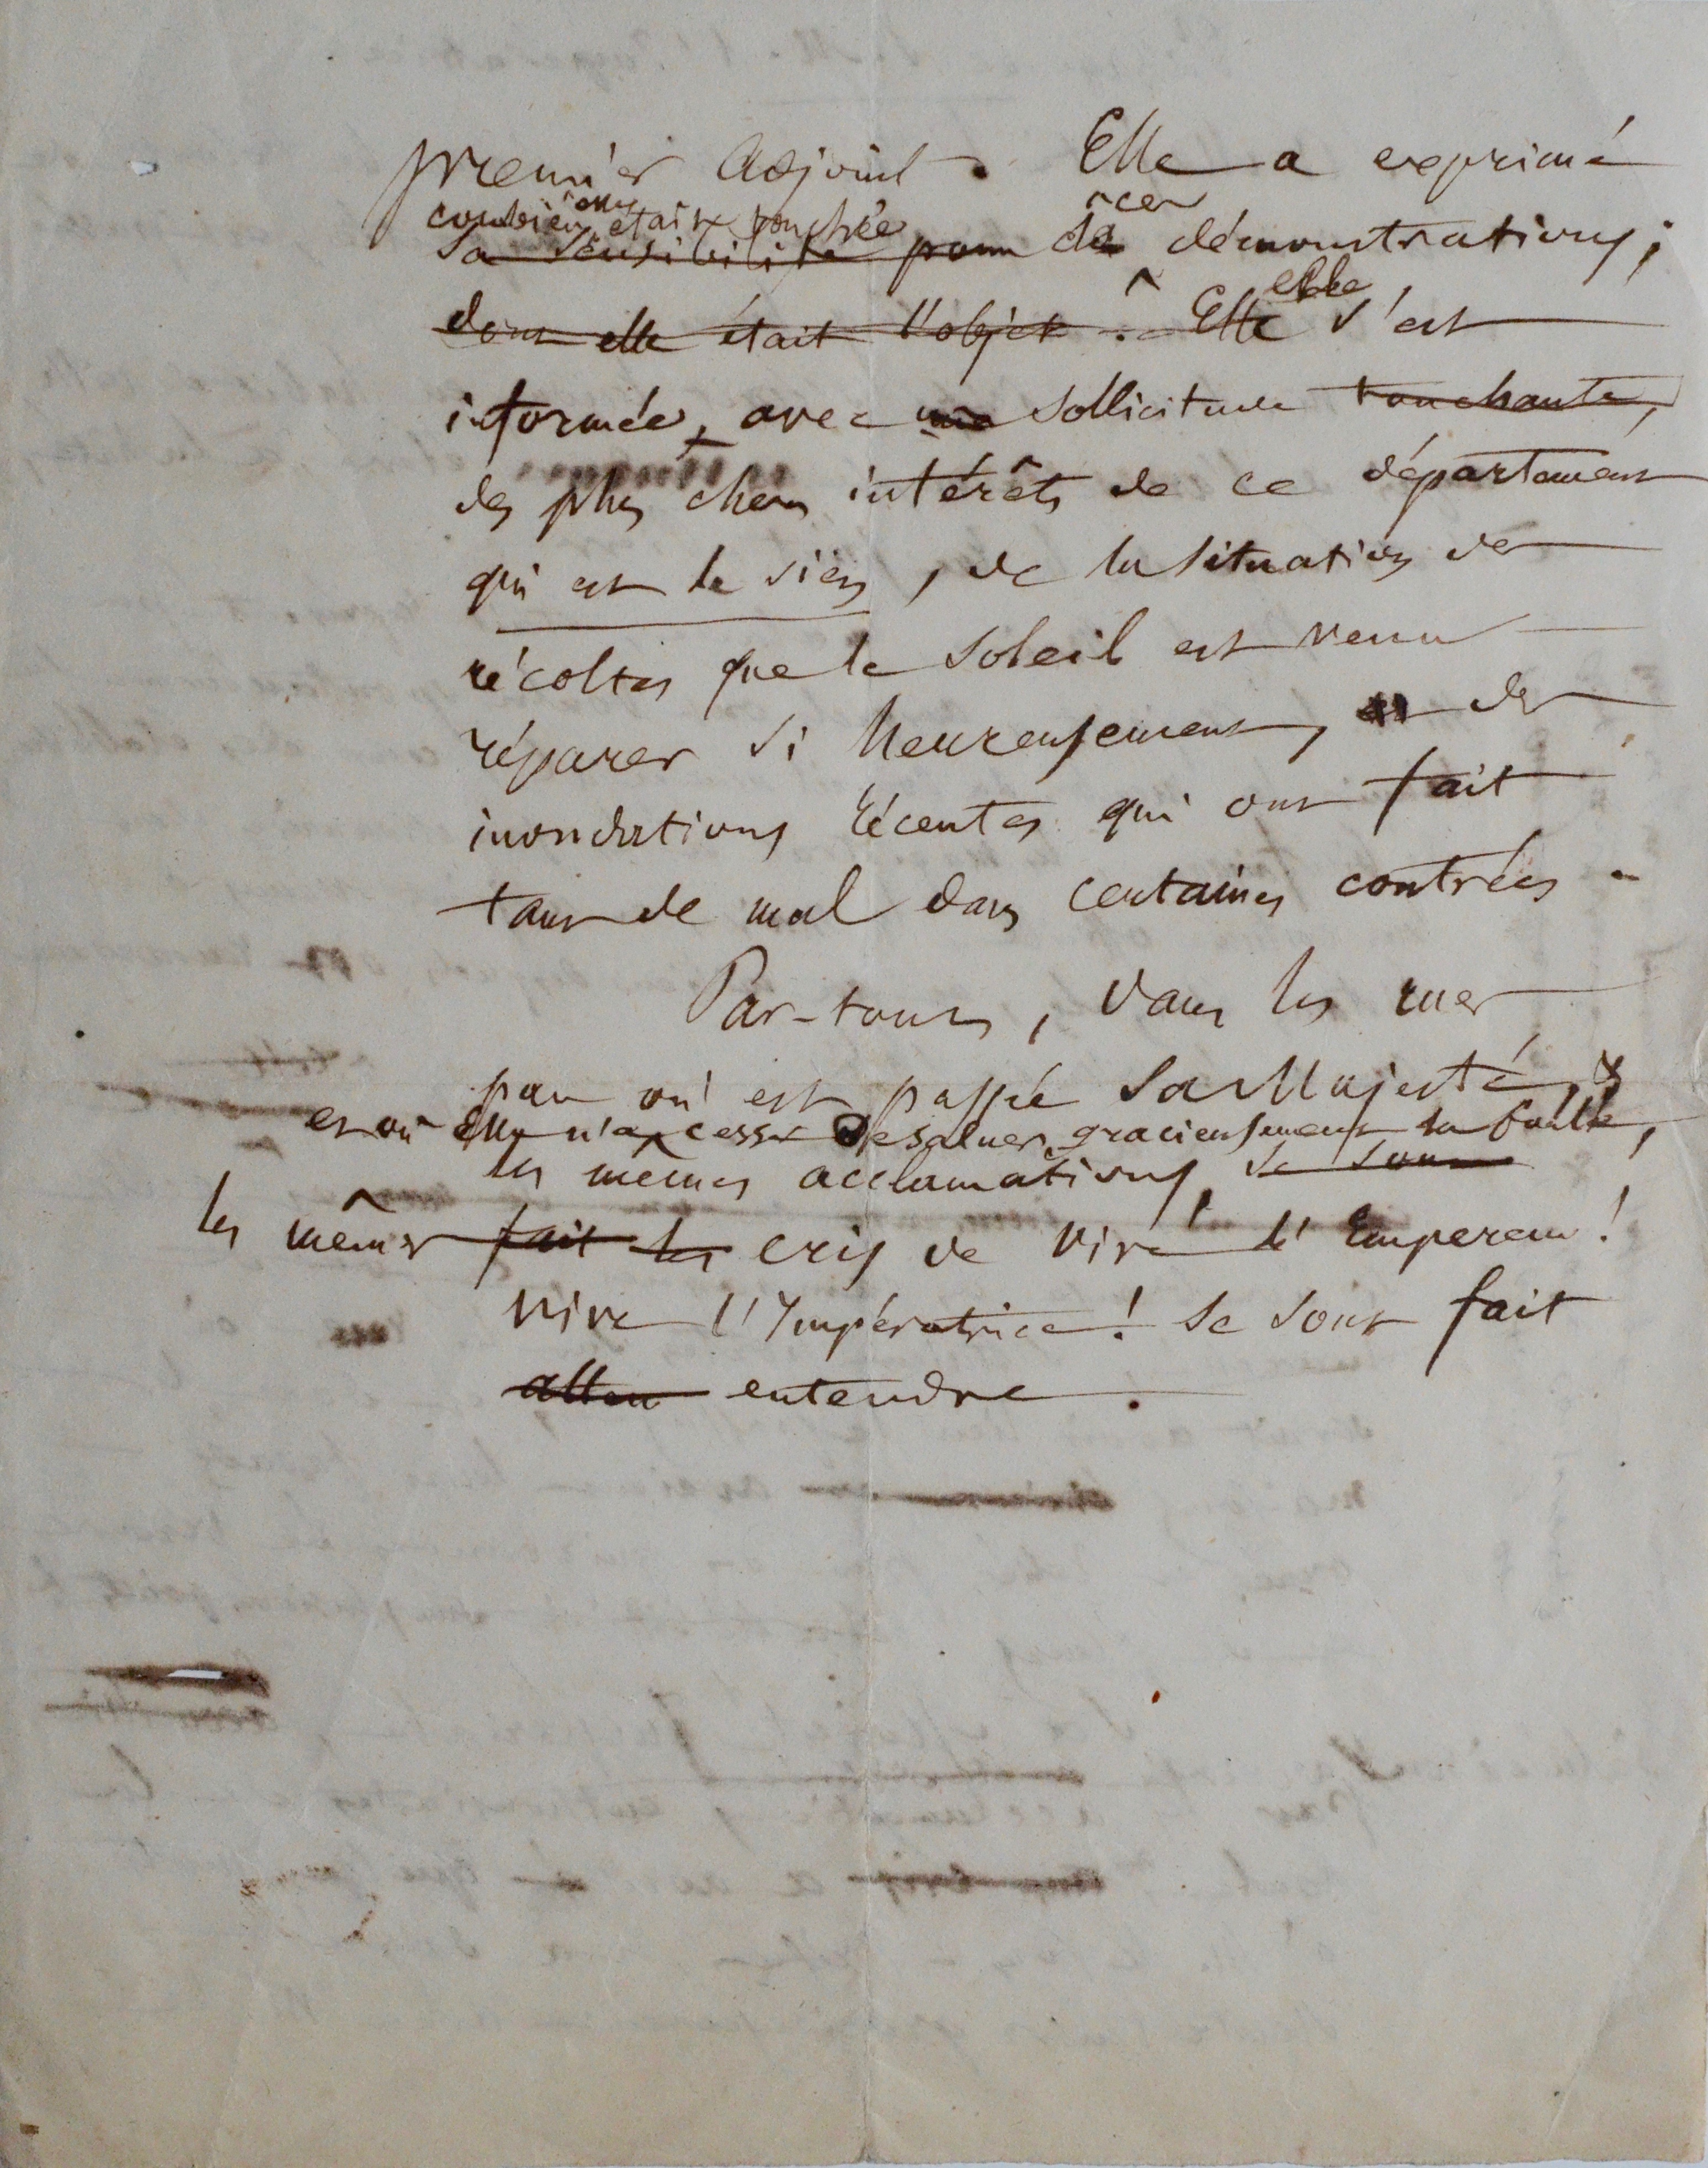 premier adjoint. Elle a exprimé
combien elle était touchée
ces
sa sensibilité pour de démonstrations ;
elle
dont elle était l'objet. Elle s'est
informée, avec une sollicitude touchante,
des plus chers intérêts de ce département
qui est le sien, de la situation des
récoltes que le soleil est venu
réparer si heureusement, et des
inondations récentes qui ont fait
tant de mal dans certaines contrées.
Par-tout, dans les rues
par où est passée Sa Majesté,
et où Elle n'a cessé de saluer gracieusement la foule,
les mêmes acclamations, se sont
les mêmes fait les cris de vive l'Empereur !
vive l'Impératrice ! se sont fait
entendre.